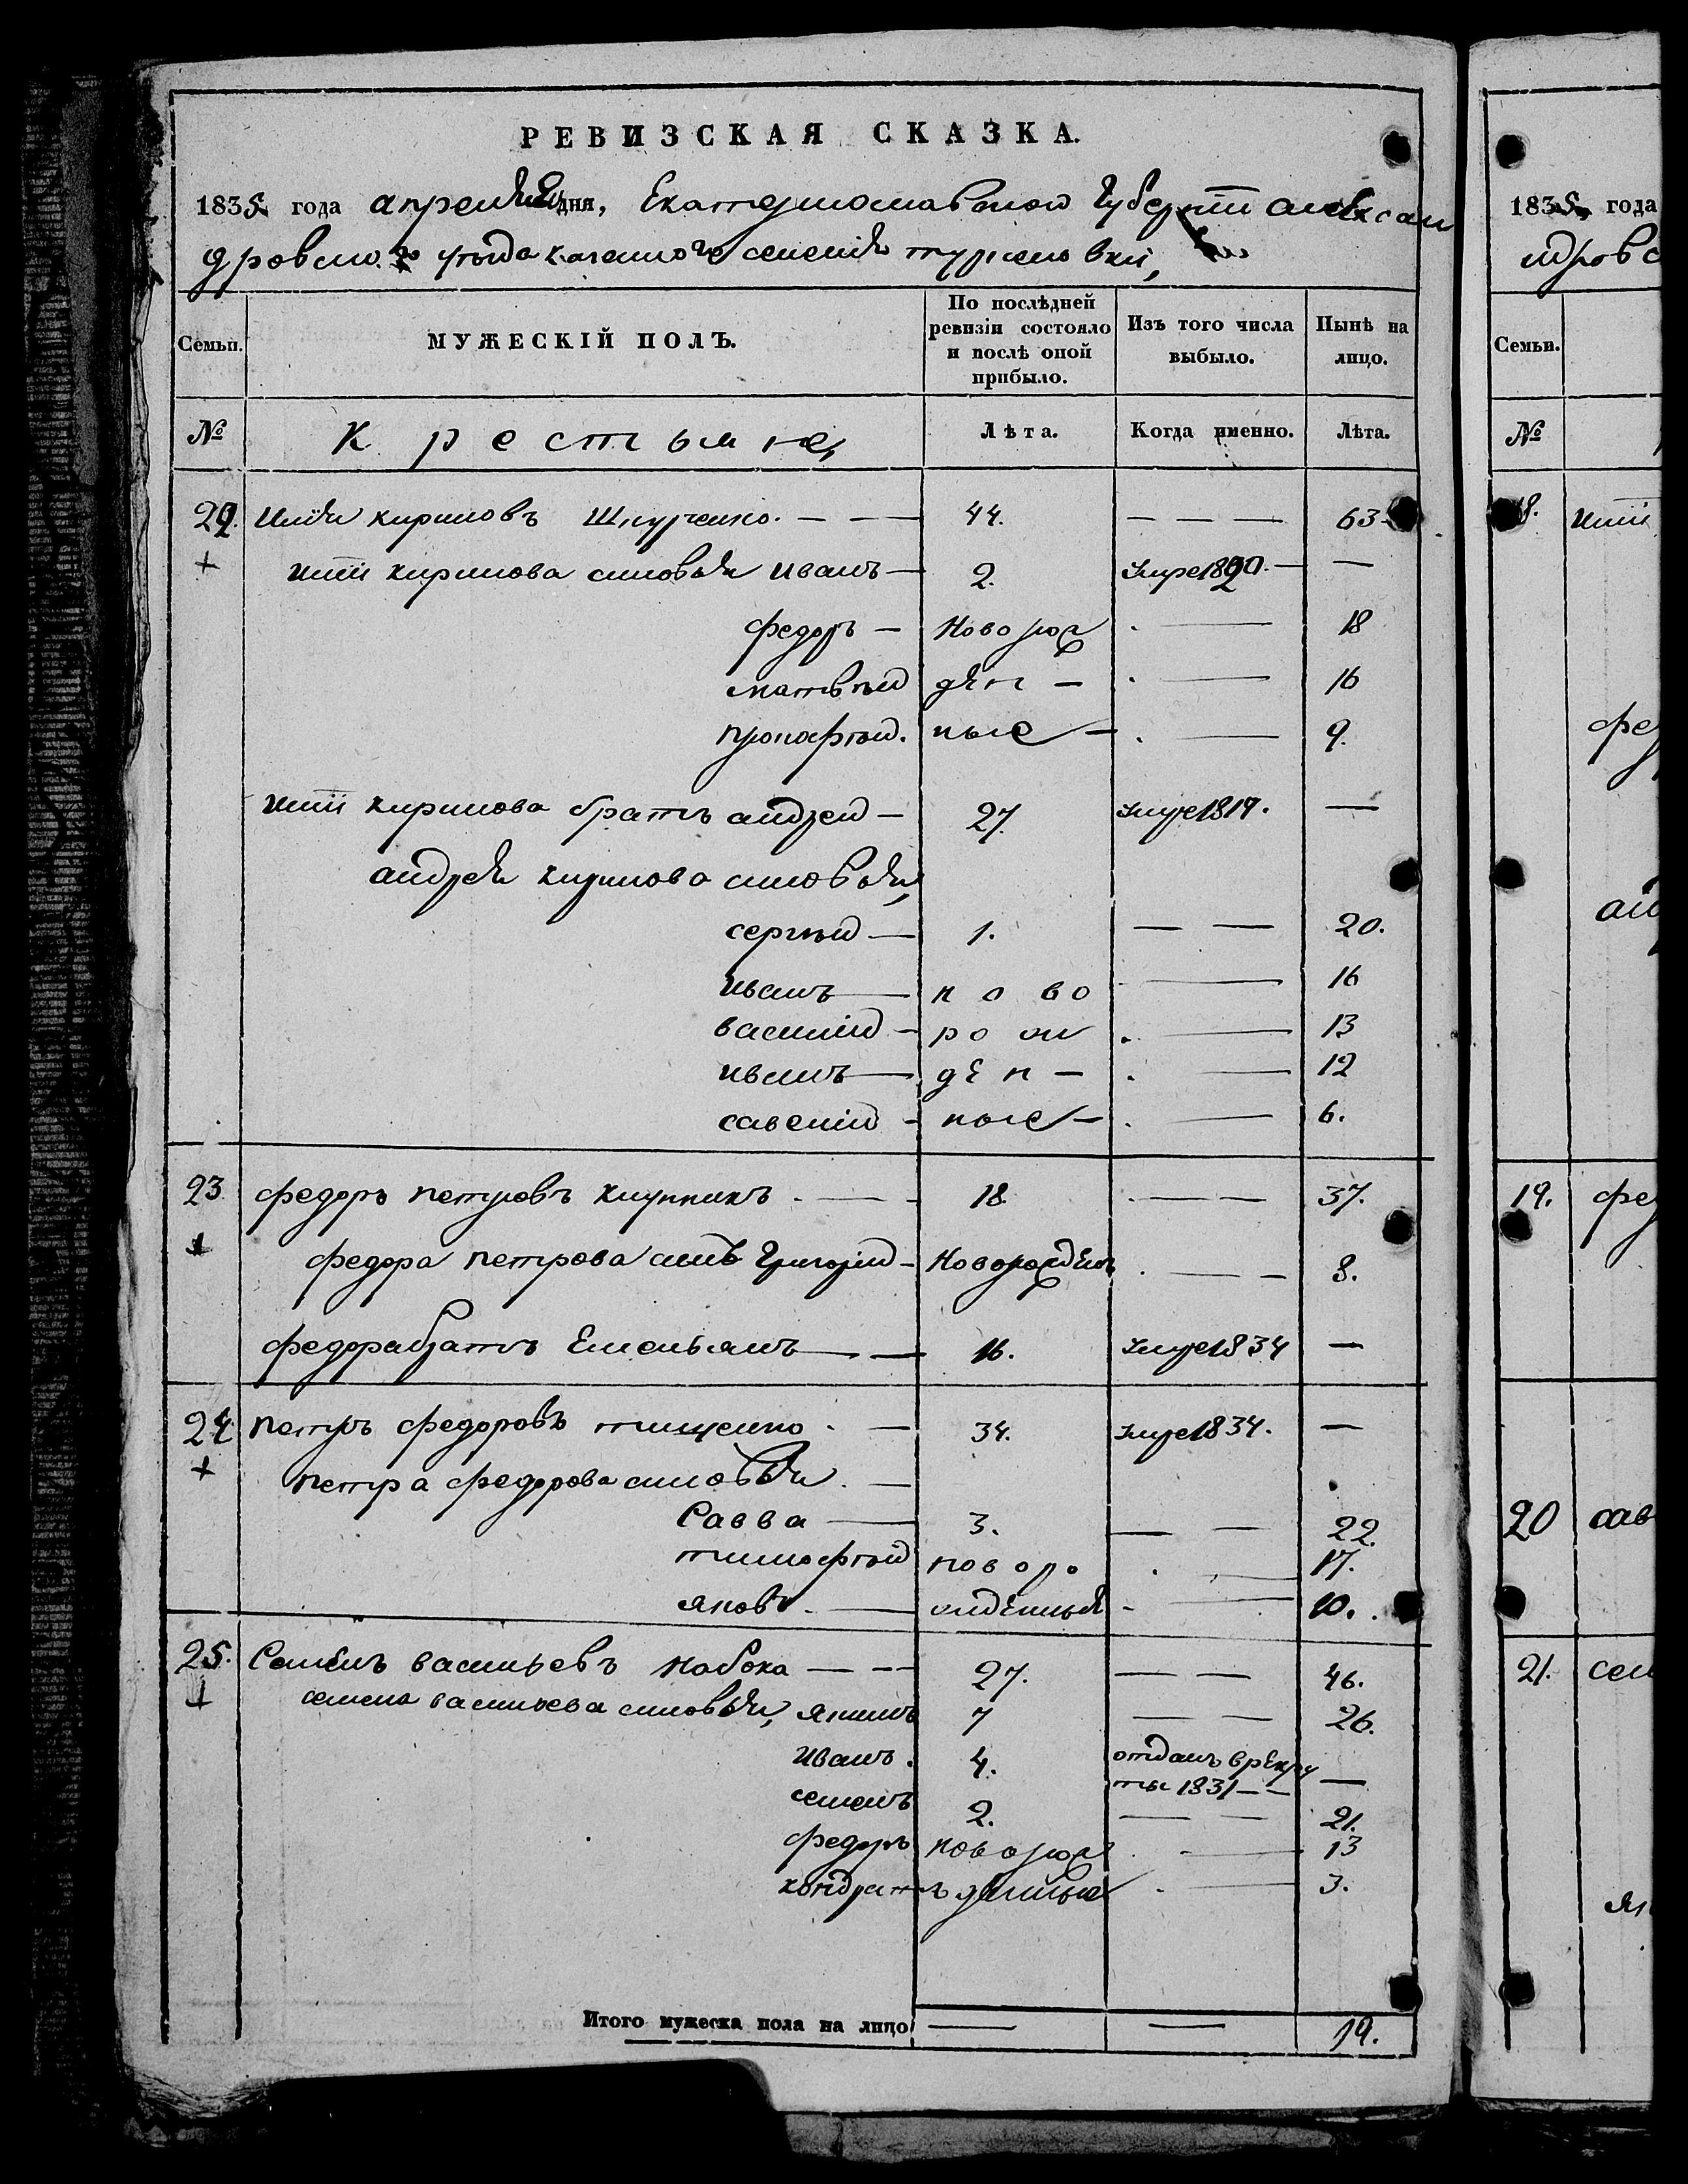 РЕВИЗСКАЯ СКАЗКА.
1835 года апреля дня, Екатеринославской Губернии алексан
дровскаго уезда казеннаго селения туркеновки,
Семьи. МУЖЕСКІЙ ПОЛЪ. По послѣдней ревизіи состояло и послѣ оной прибыло. Изъ того числа выбыло. Нынѣ на лицо.
№ Крестьяне, Лѣта. Когда именно. Лѣта.
22. Илья кириловъ Шкурченко. — — 44. — — — 63
+ ильи кирилова сыновья иванъ — 2. умре 1820. — —
федоръ — Новорож . — 18
матвѣй ден — . — 16
прокофѣй. ные — . — 9.
ильи кирилова братъ андрей — 27. умре 1819. —
андрея кирилова сыновья,
сергѣй — 1. — — 20.
иванъ — ново — 16
василій — рож . — 13
иванъ — ден — . — 12
савелій — ные — . — 6.
23 федоръ петровъ — 18. . — — 37.
+ федора петрова сынъ Григорій — Новорожденъ . — — 8.
федора братъ Емельянъ — — 16. умре 1834 —
24. петръ федоровъ тищенко . — 34. умре 1834. —
+ петра федорова сыновья . —
Савва — 3. — — 22.
тимофѣй новоро . — 17.
яковъ. — жденныя — 10.
25. Семенъ васильевъ набока — — 27. — — 46.
+ семена васильева сыновья, якимъ 7 — — 26.
иванъ. 4. отданъ врекру
ты 1831 — — —
семенъ 2. — — 21.
федоръ новорож . — 13
кондратъ денные . — 3.
Итого мужеска пола на лицо — — 19.
1835 года
ндровс
Семьи.
№
18. ильи
фе
ан
19. фе
20 сав
21. сем
як